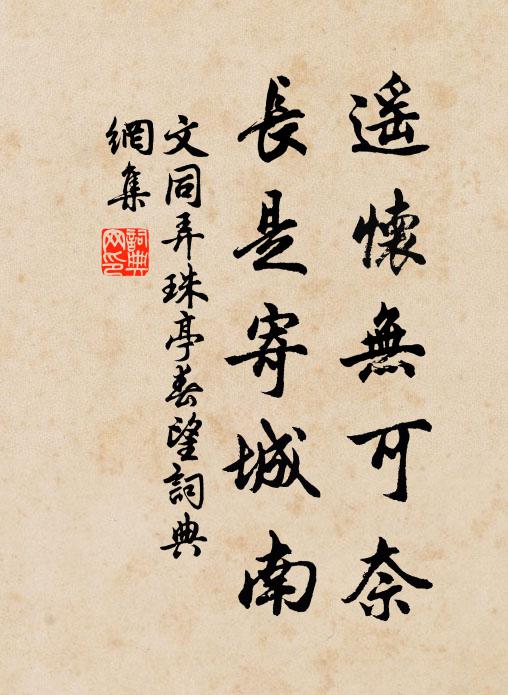 遥懷無可奈
長是寄城南
文同弄珠亭春望詞典
網集
詞典网印